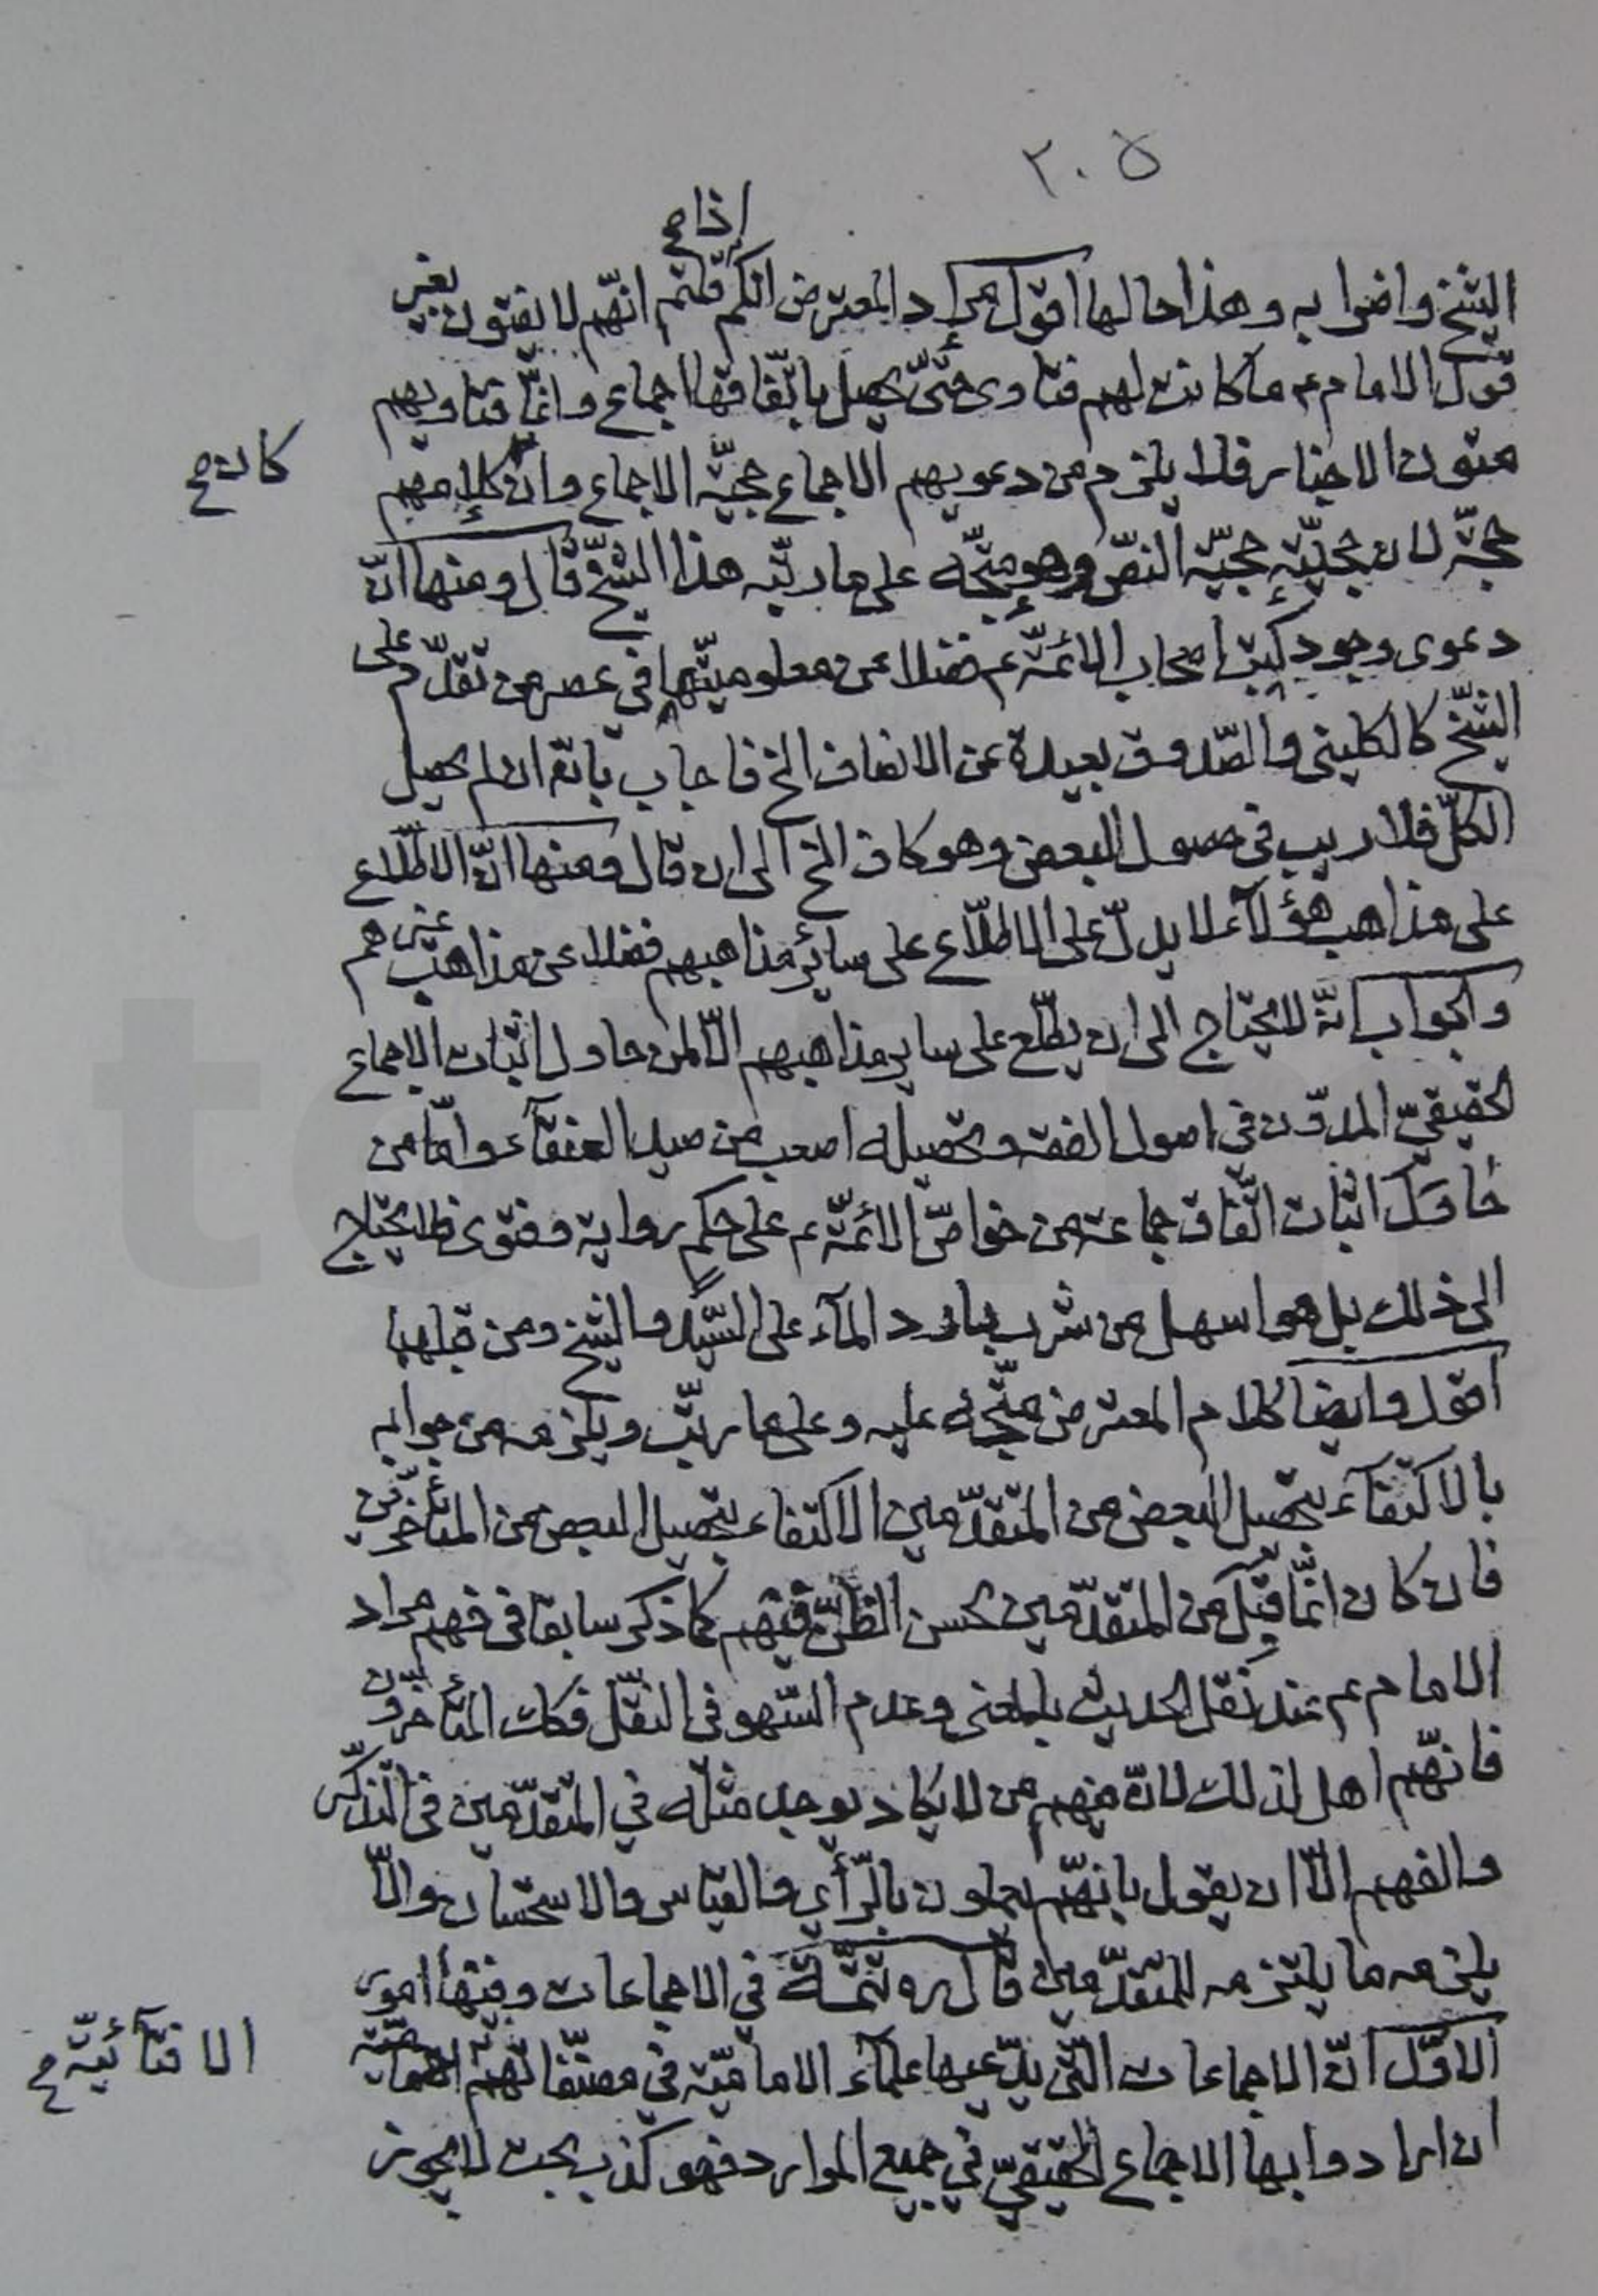 ٣٠٥
اذا ح
الشيخ واضرابه وهذا حالها اقول مراد المعترض انكم قلتم انهّم لا يفتون بغير
قول الامام عم ما كانت لهم فتاوى حتىّ يحصل باتّفاقها اجماع وانمّا فتاويهم
متون الاخبار فلا يلزم من دعويهم الاجماع حجيّة الاجماع وان كلا منهم
كانت ح
حجّة لان حجيّته حجيّة النصّ وهو متجّه على ما ربّبه هذا الشيخ قال ومنها انّ
دعوى وجود كتب اصحاب الائمّة عم فضلا عن معلوميتّها في عصر من تقدّم على
الشّيخ كالكليني والصّدوق بعيدة عن الانصاف الخ فاجاب بانّه ان لم يحصل
الكلّ فلا ريب في حصول البعض وهو كاف الخ الى ان قال ومنها انّ الاطّلاع
على مذاهب هؤلآء لا يدلّ على الاطّلاع على سائر مذاهبهم فضلا عن مذاهب غيرهم
والجواب انّه لا يحتاج الى ان يطّلع على ساير مذاهبهم الّا لمن حاول اثبات الاجماع
الحقيقيّ المدوّن في اصول الفقه وتحصيله اصعب من صيد العنقآء وامّا من
حاول اثبات اتّفاق جماعة من خواصّ الائمّة عم على حكم رواية وفتوى فلا يحتاج
الى ذلك بل هو اسهل من شرب بارد المآء على السّيّد والشيخ ومن قبلهما
اقول وايضا كلام المعترض متّجه عليه وعلى ما ربّب ويلزمه من جوابه
بالاكتفآء بتحصيل البعض من المتقدّمين الاكتفاء بتحصيل البعض من المتأخّرين
فان كان انمّا قبل من المتقدّمين لحسن الظنّ فيهم كما ذكر سابقا في فهم مراد
الامام عم عند نقل الحديث بالمعنى وعدم السّهو في النقل فكك المتأخّرون
فانهّم اهل لذلك لانّ منهم من لا يكاد يوجد مثله في المتقدّمين في التذكّر
والفهم الّا ان يقول بانهّم يعملون بالرّأي والقياس والاستحسان والّا
يلزمه ما يلتزمه للمتقدّمين قال ره تتمّة في الاجماعات وفيها امور
الاوّل انّ الاجماعات التّي يدّعيها علمآء الاماميّة في مصنّفاتهم
الافتآئيّة ح
ان ارادوا بها الاجماع الحقيقيّ في جميع الموارد فهو كذب بحت لا يجوز